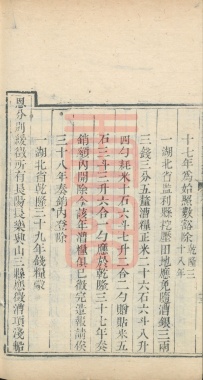 十七年為始照數豁除乾隆三十八年
一湖北省監利縣挖壓田地應免隨漕銀三兩
三錢三分五釐漕糧正米二十六石六斗八升
四勺耗米十石六斗七升二合二勺贈貼米五
石三斗三升六合一勺應於乾隆三十七年奏
銷額內開除今該年漕糧俱已徵完造報請俟
三十八年奏銷內登除
一湖北省乾隆三十九年錢糧蒙
恩分別緩徵所有長陽長樂興山三縣應徵漕項淺船